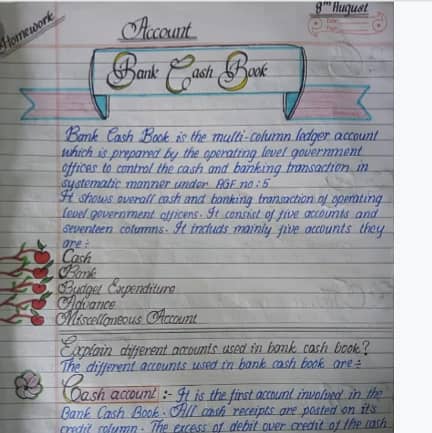 8th August
Homework
Account
Bank Cash Book
Bank Cash Book is the multi-column ledger account
which is prepared by the operating level government
offices to control the cash and banking transaction in
systematic manner under AGF no:5
It shows overall cash and banking transaction of operating
level government officers. It consist of five accounts and
seventeen columns. It includs mainly five accounts they
are:
Cash
Bank
Budget Expenditure
Advance
Miscellaneous Account
Explain different accounts used in bank cash book?
The different accounts used in bank cash book are:
Cash account :- It is the first account involved in the
Bank Cash Book. All cash receipts are posted on its
credit column. The excess of debit over credit of the cash